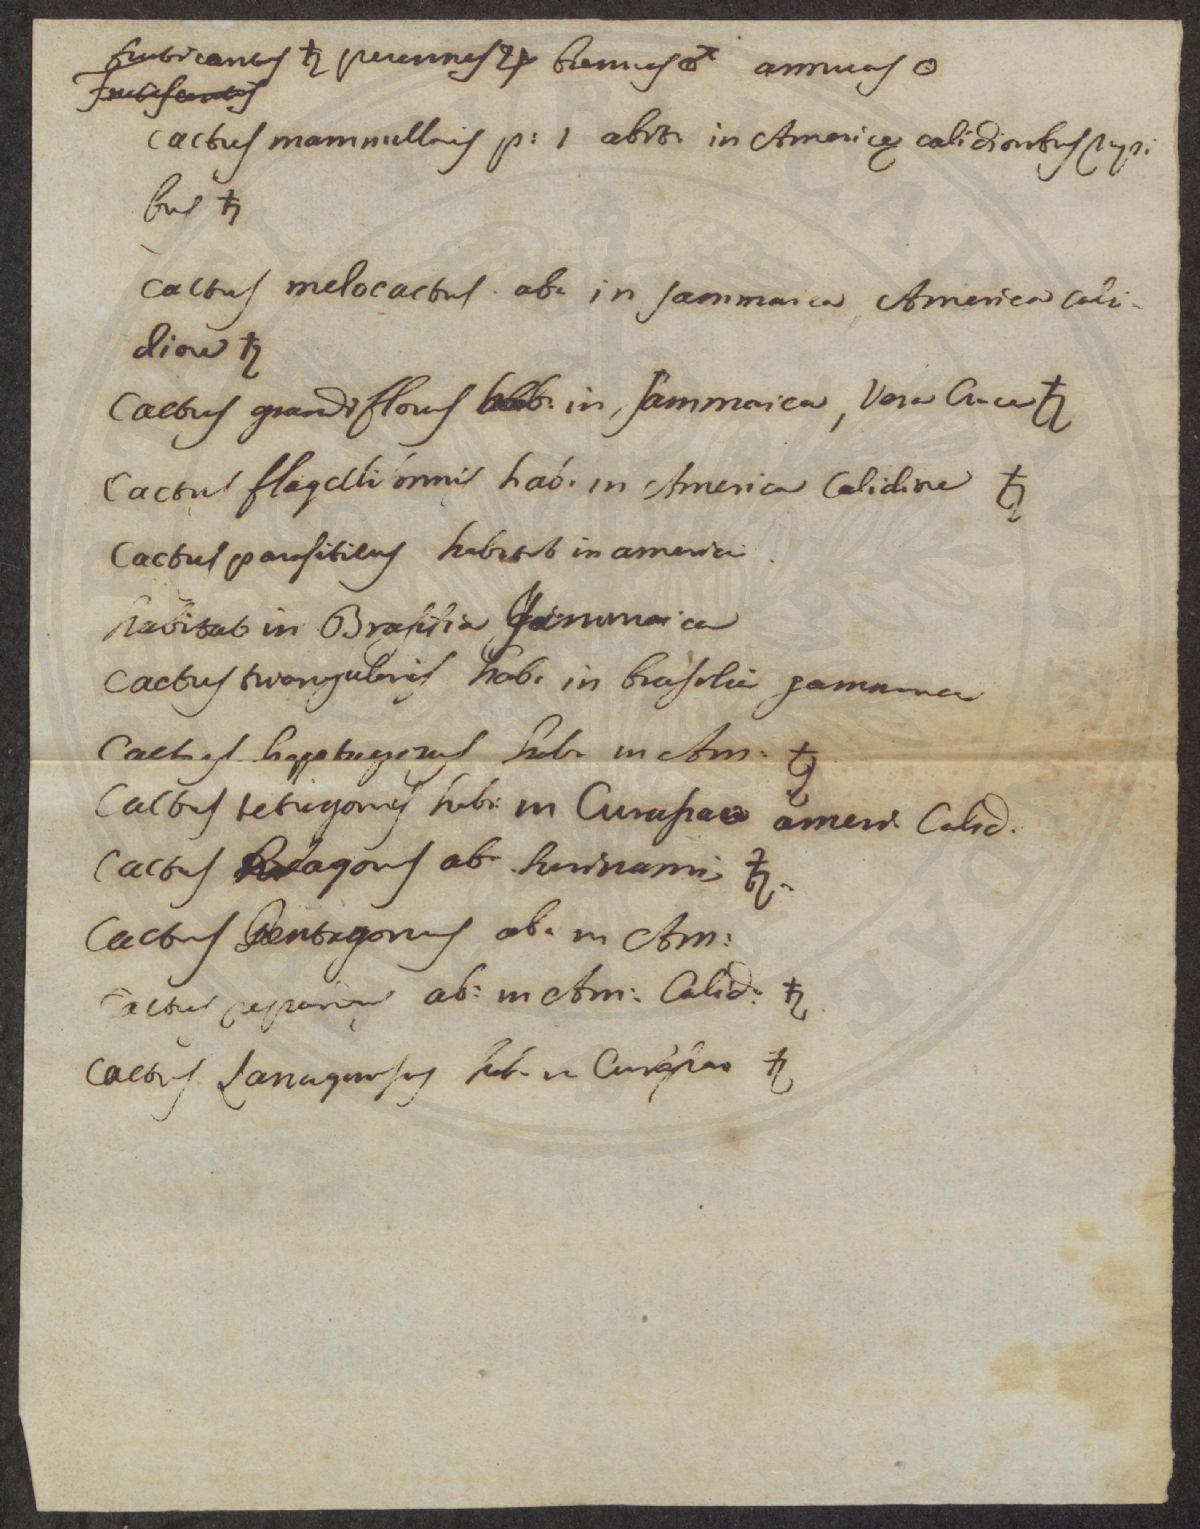 fruticantes ♄ perennes ♃ biennes ♂ annuas ☉
Cactus mammillaris p: 1 abit: in Americę calidioribus rupi
bus ♄
Cactus melocactus ab: in Jammaica, America Cali-
diore ♄
Cactus grandiflorus hab: in Jammaica, Vera Cruce ♄
Cactus flagelliformis hab: in America Calidiore ♄
Cactus parasiticus habitat in america
habitat in Brasilia Jammaica
Cactus triangularis hab: in brasilia jammaica
Cactus heptagonus hab: in Am: ♄
Cactus tetragonus hab: in Curassao ameri Calid.
Cactus ab surinami ♄
Cactus Pentagonus ab: in Am:
Cactus ab: in Am: Calid: ♄
Cactus Lanuginosus hab: in Curassao ♄